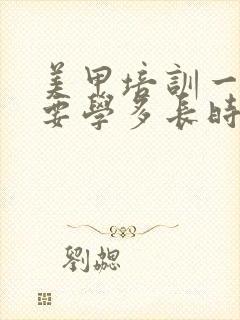 美甲培訓一
要學多長時
劉勰